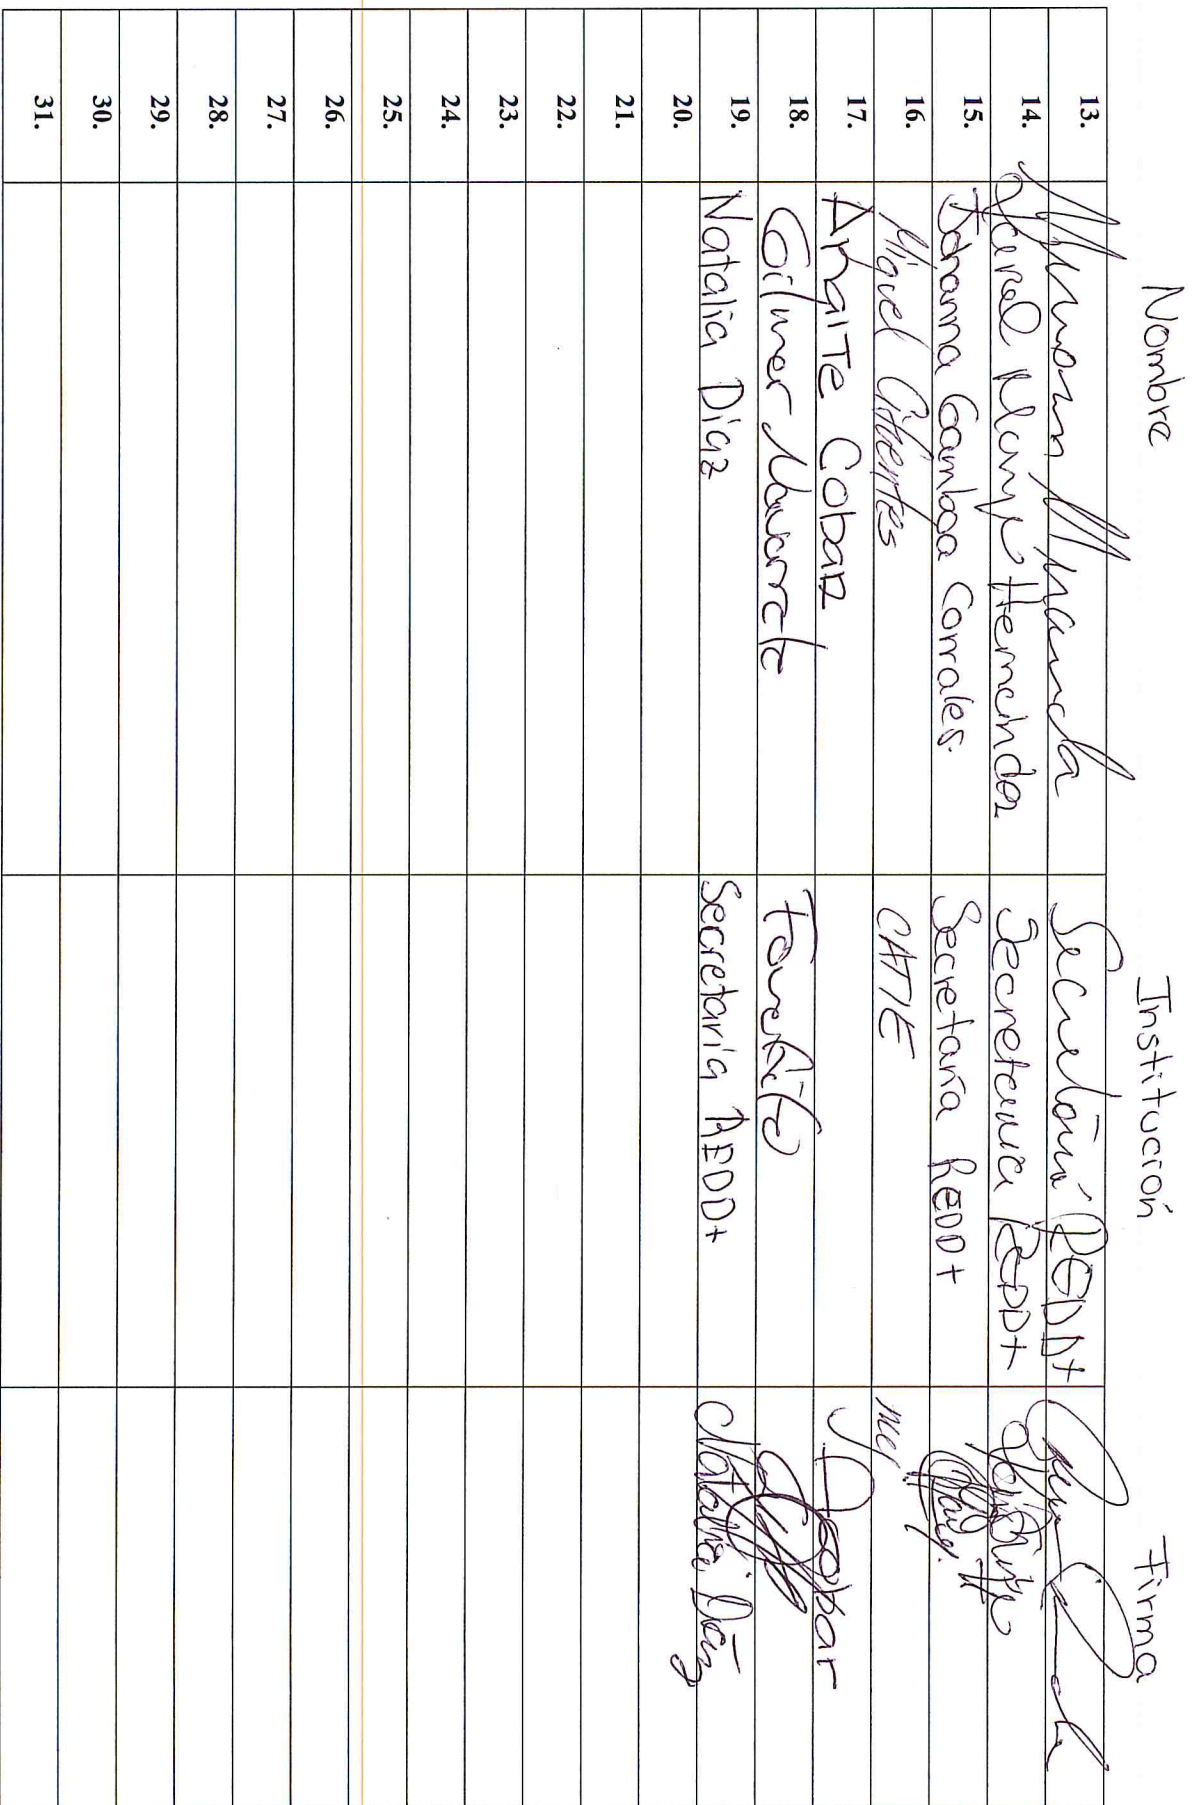 Nombre Institución Firma
13. Secretaría REDD+
14. Hernández Secretaria REDD+
15. Johanna Gamboa Corrales. Secretaría REDD+
16. Miguel Cifuentes CATIE
17. Anaite Cobar
18. Gilmer Navarrete Fonafifo
19. Natalia Díaz Secretaría REDD+ Natalia Díaz
20.
21.
22.
23.
24.
25.
26.
27.
28.
29.
30.
31.